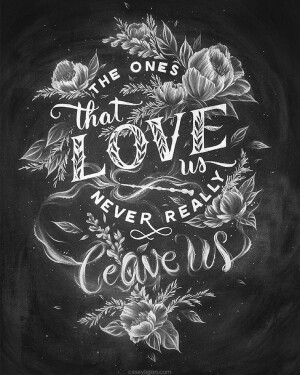 THE ONES
that
LOVE
us
NEVER REALLY
leave us